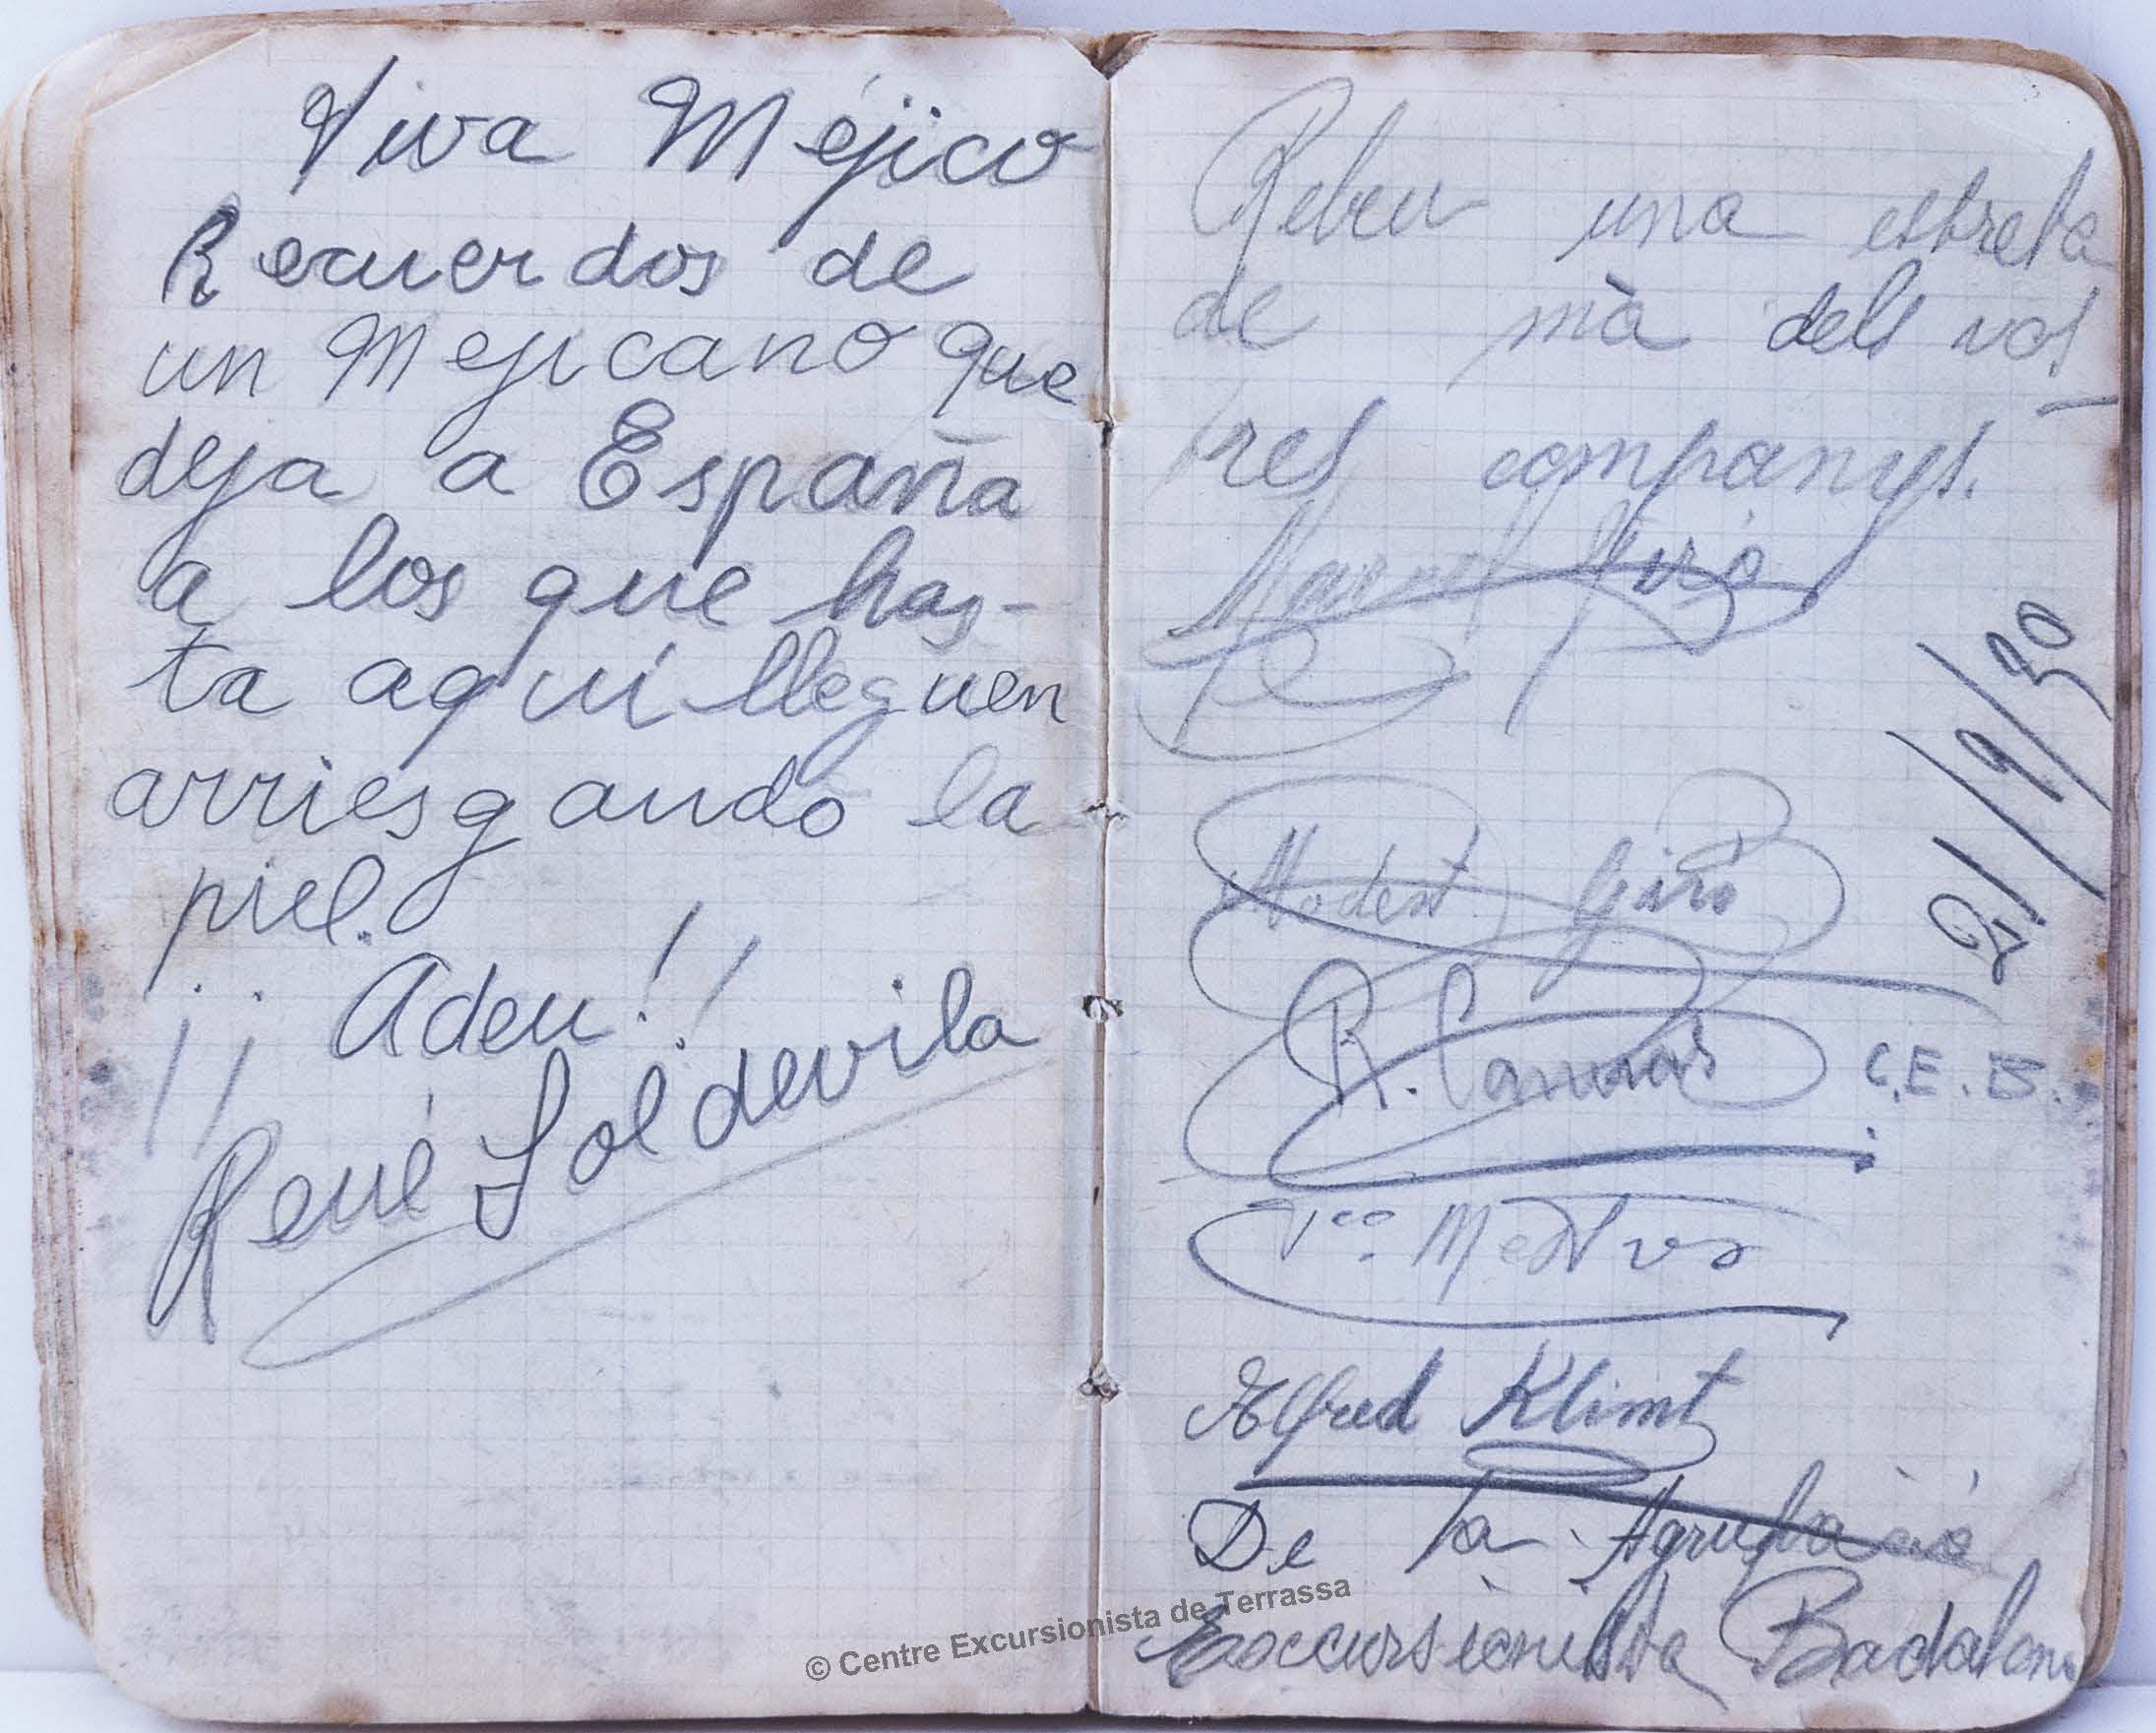 Viva Méjico
Recuerdos de
un Mejicano que
deja a España
a los que has-
ta aquí lleguen
arriesgando la
piel.
¡¡Adeu!!
René Soldevila
Rebeu una estreta
de mà dels vos-
tres companys.
Manuel Giró
21/9/30
Modest Giró
R. Camras C.E.B.
Alfred Klimt
De la Agrupació
Excursionista Badalona
© Centre Excursionista de Terrassa